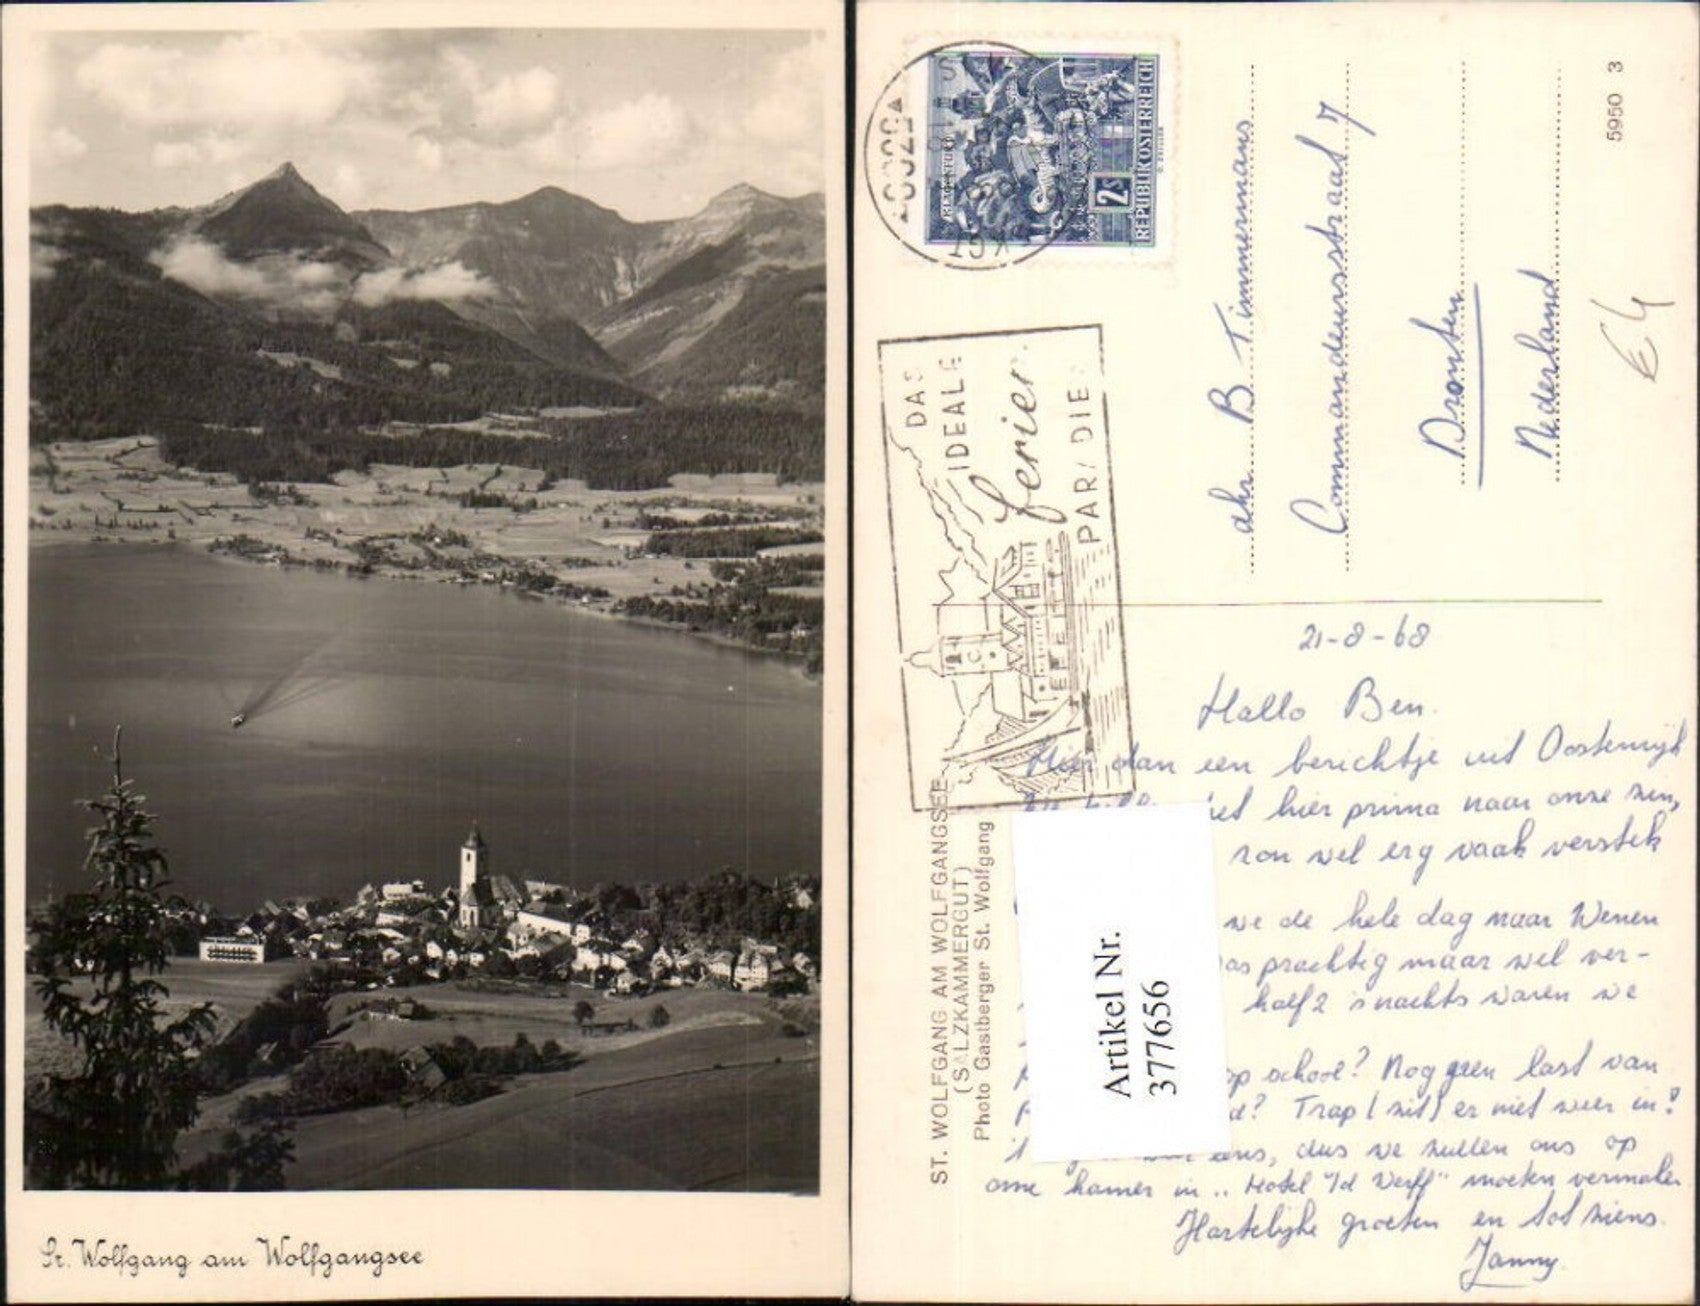 St. Wolfgang am Wolfgangsee
KLAGENFURT
2s
REPUBLIK ÖSTERREICH
DAS
IDEALE
ferien
PARADIES
5950 3
dhr. B Timmermans
Commandeursstraat 7
Dronten
Nederland
€4
ST. WOLFGANG AM WOLFGANGSEE
(SALZKAMMERGUT)
Photo Gastberger St. Wolfgang
Artikel Nr.
377656
21-8-68
Hallo Ben.
Hier dan een berichtje uit Oostenrijk
het hier prima naar onze zin,
zon wel erg vaak verstek
we de hele dag naar Wenen
was prachtig maar wel ver-
half 2 's nachts waren we
op school? Nog geen last van
Trap (zit) er niet weer in?
eens, dus we zullen ons op
onze kamer in ,, Hotel v/d Werff" moeten vermaken
Hartelijke groeten en tot ziens.
Janny.